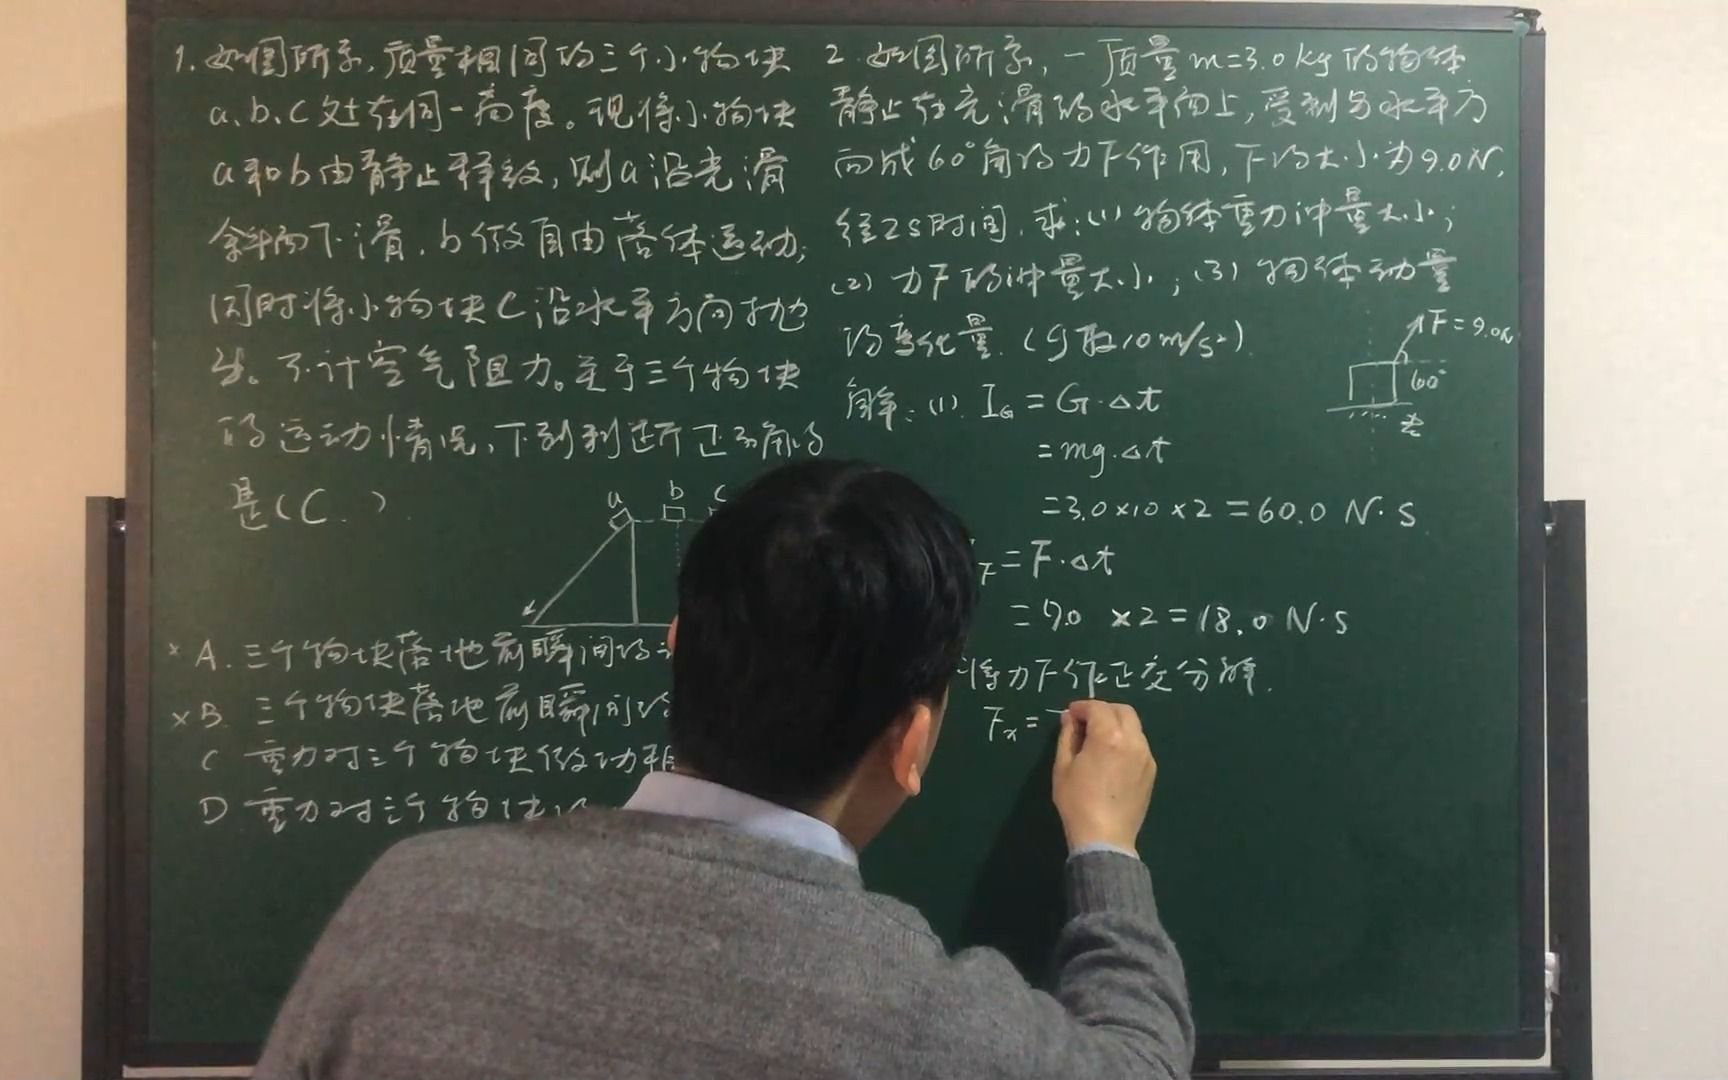 1. 如图所示，质量相同的三个小物块
a、b、c处在同一高度。现将小物块
a和b由静止释放，则a沿光滑
斜面下滑，b做自由落体运动；
同时将小物块c沿水平方向抛
出。不计空气阻力。关于三个物块
的运动情况，下列判断正确的
是(C )
a b c
×A. 三个物块落地前瞬间的
×B. 三个物块落地前瞬间
C 重力对三个物块做功相
D 重力对三个物块
2. 如图所示，一质量m=3.0kg的物体
静止在光滑的水平面上，受到与水平方
向成60°角的力F作用，F的大小为9.0N，
经2s时间，求：(1)物体重力冲量大小；
(2) 力F的冲量大小；(3) 物体动量
的变化量。(g取10m/s²).
F=9.0N
60°
解：(1). I_G = G·Δt
= mg·Δt
=3.0×10×2=60.0 N·S
F = F·Δt
= 9.0 ×2=18.0 N·S
将力F作正交分解.
Fx =